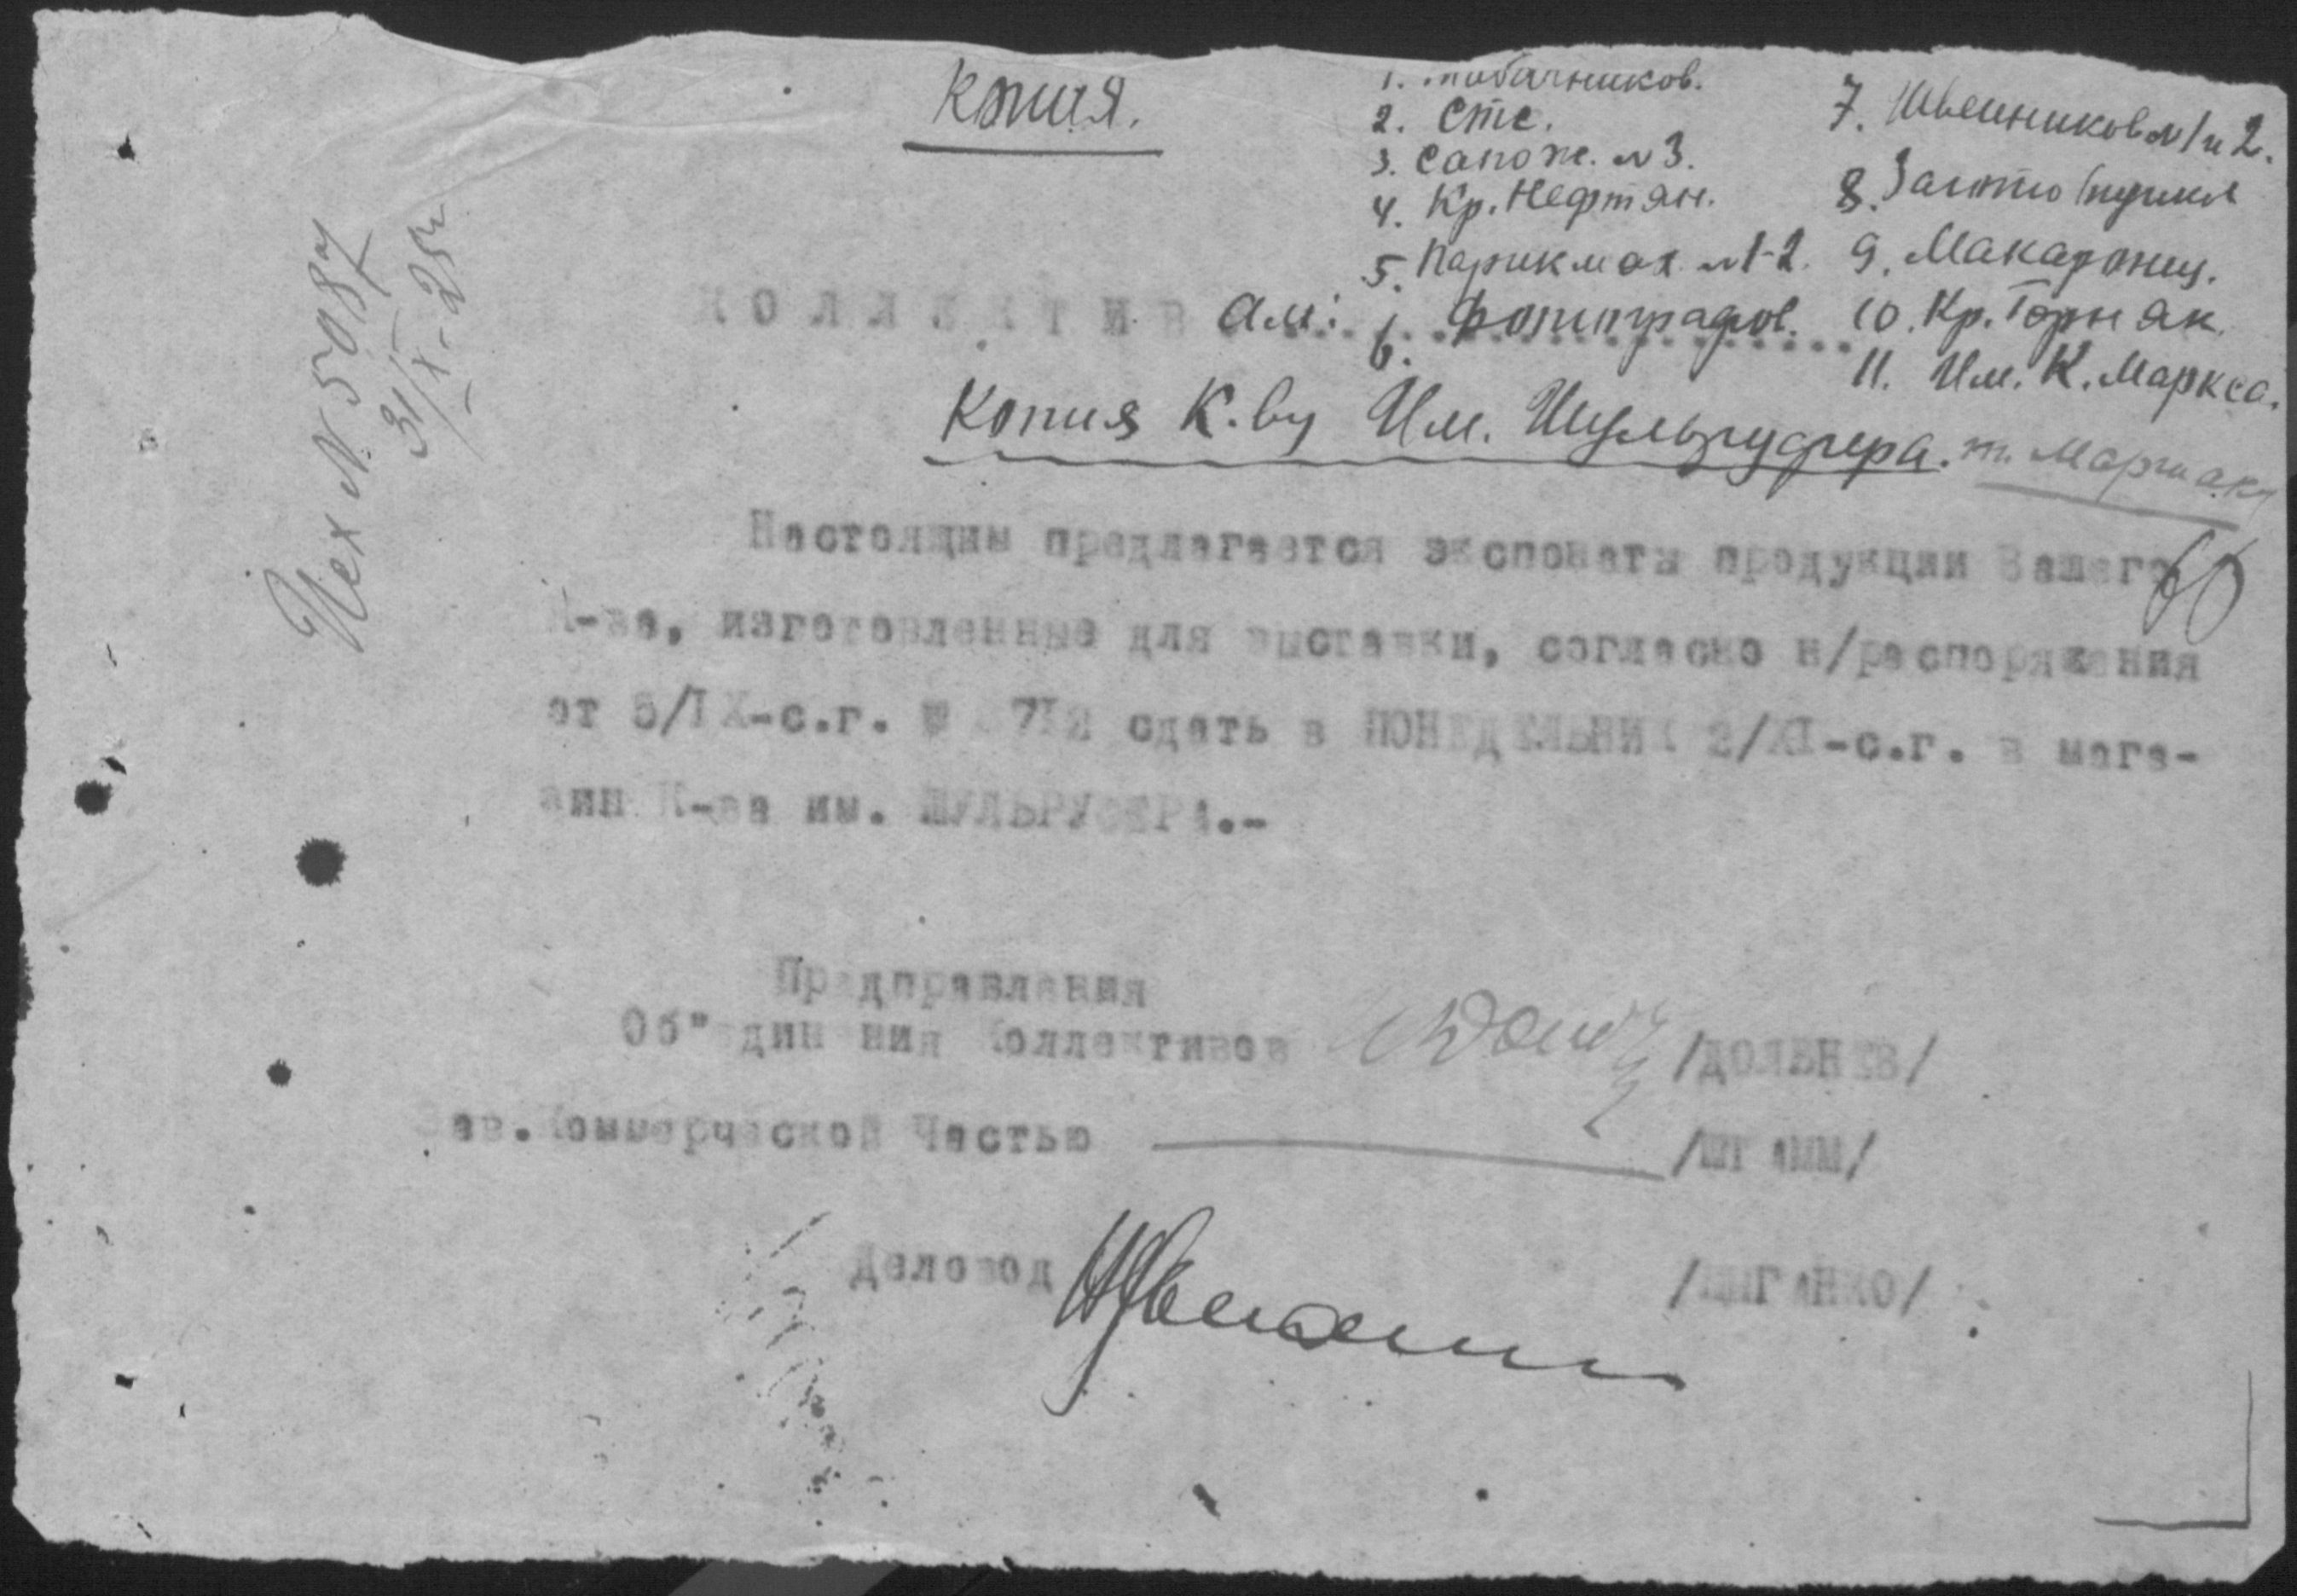 Копия.
1. Табачников.
2. Стс.
3. Сапож. №3.
4. Кр. Нефтян.
5. Парикмах. №1-2.
6. Фотографов.
7. Швейников №1 и 2.
8.
9. Макаронщ.
10. Кр. Горняк.
11. Им. К. Маркса.
Исх № 5087
31/X-25г
КОЛЛЕКТИВ ам:
Копия К-ву Им. Шульруфера. т. Маршаку
Настоящим предлагается экспонаты продукции Вашего
К-ва, изготовленные для выставки, согласно н/распоряжения
от 5/IX-с.г. № 712 сдать в ПОНЕДЕЛЬНИК 2/XI-с.г. в мага-
зин К-ва им. ШУЛЬРУФЕРА.-
Предправления
Об"единения Коллективов /ДОЛЬНЕВ/
Зав.Коммерческой Частью /ШТАММ/
Деловод /ЦЫГАНКО/